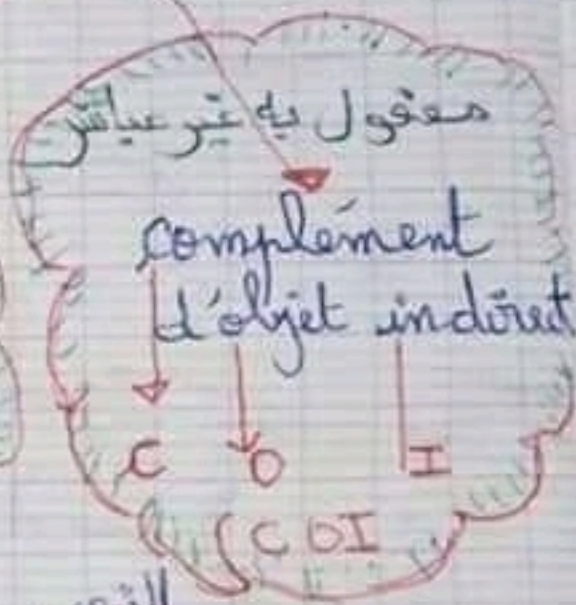 مفعول به غير مباشر
complément
d'objet indirect
C O I
(COI